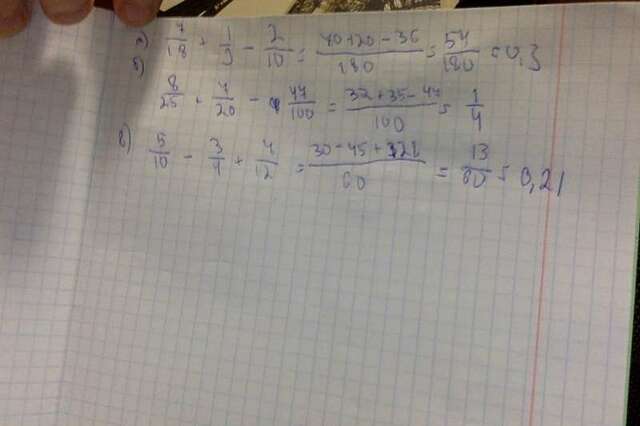 а) 7/18 + 1/9 - 2/10 = (70+20-36)/180 = 54/180 = 0,3
б) 8/25 + 7/20 - 47/100 = (32+35-47)/100 = 1/4
в) 5/10 - 3/4 + 4/12 = 30-45+ /60 = 13/60 = 0,21